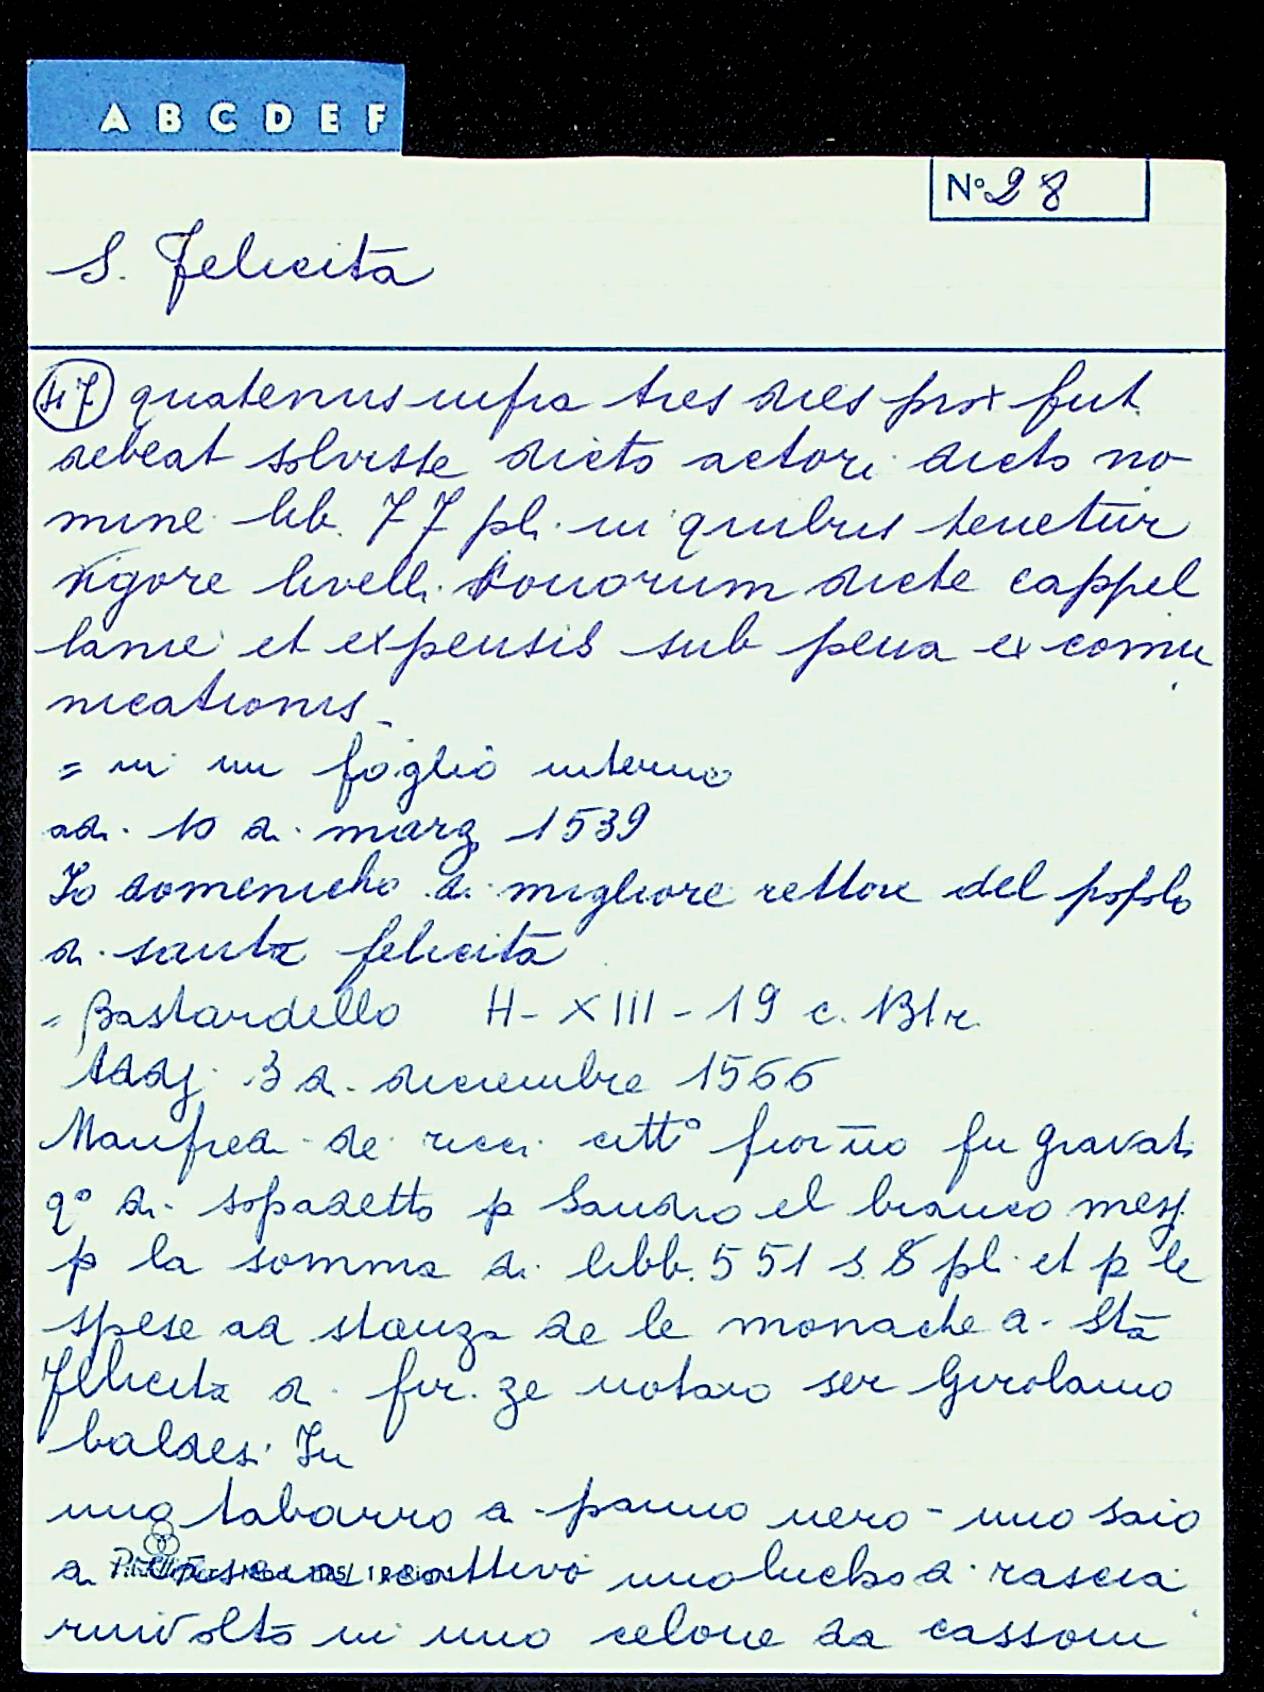 A B C D E F
N° 28
S. Felicità
quatenus infra tres dies prox fut.
debeat solvisse dicto actori dicto no
mine lib. 77 pl. in quibus tenetur
vigore livelli bonorum dicte cappel
lanie et expensis sub pena excomu
nicationis
= in un foglio interno
adi 10 di marz 1539
Io domenicho di migliore rettore del popolo
di santa felicità
= Bastardello H - XIII - 19 c. 131r.
Addj 3 di dicembre 1566
Manfredi de ricci citt° fior no fu gravat
q° di sopadetto p Sandro el bianco mess
p la somma di libb. 551 s. 8 pl. et p le
spese ad stanza de le monache di Sta
Felicita di fir.ze notaio ser Girolamo
baldesi In
uno tabarro di panno nero - uno saio
di cattivo uno lucho di rascia
rinvolto in uno celone da cassoni